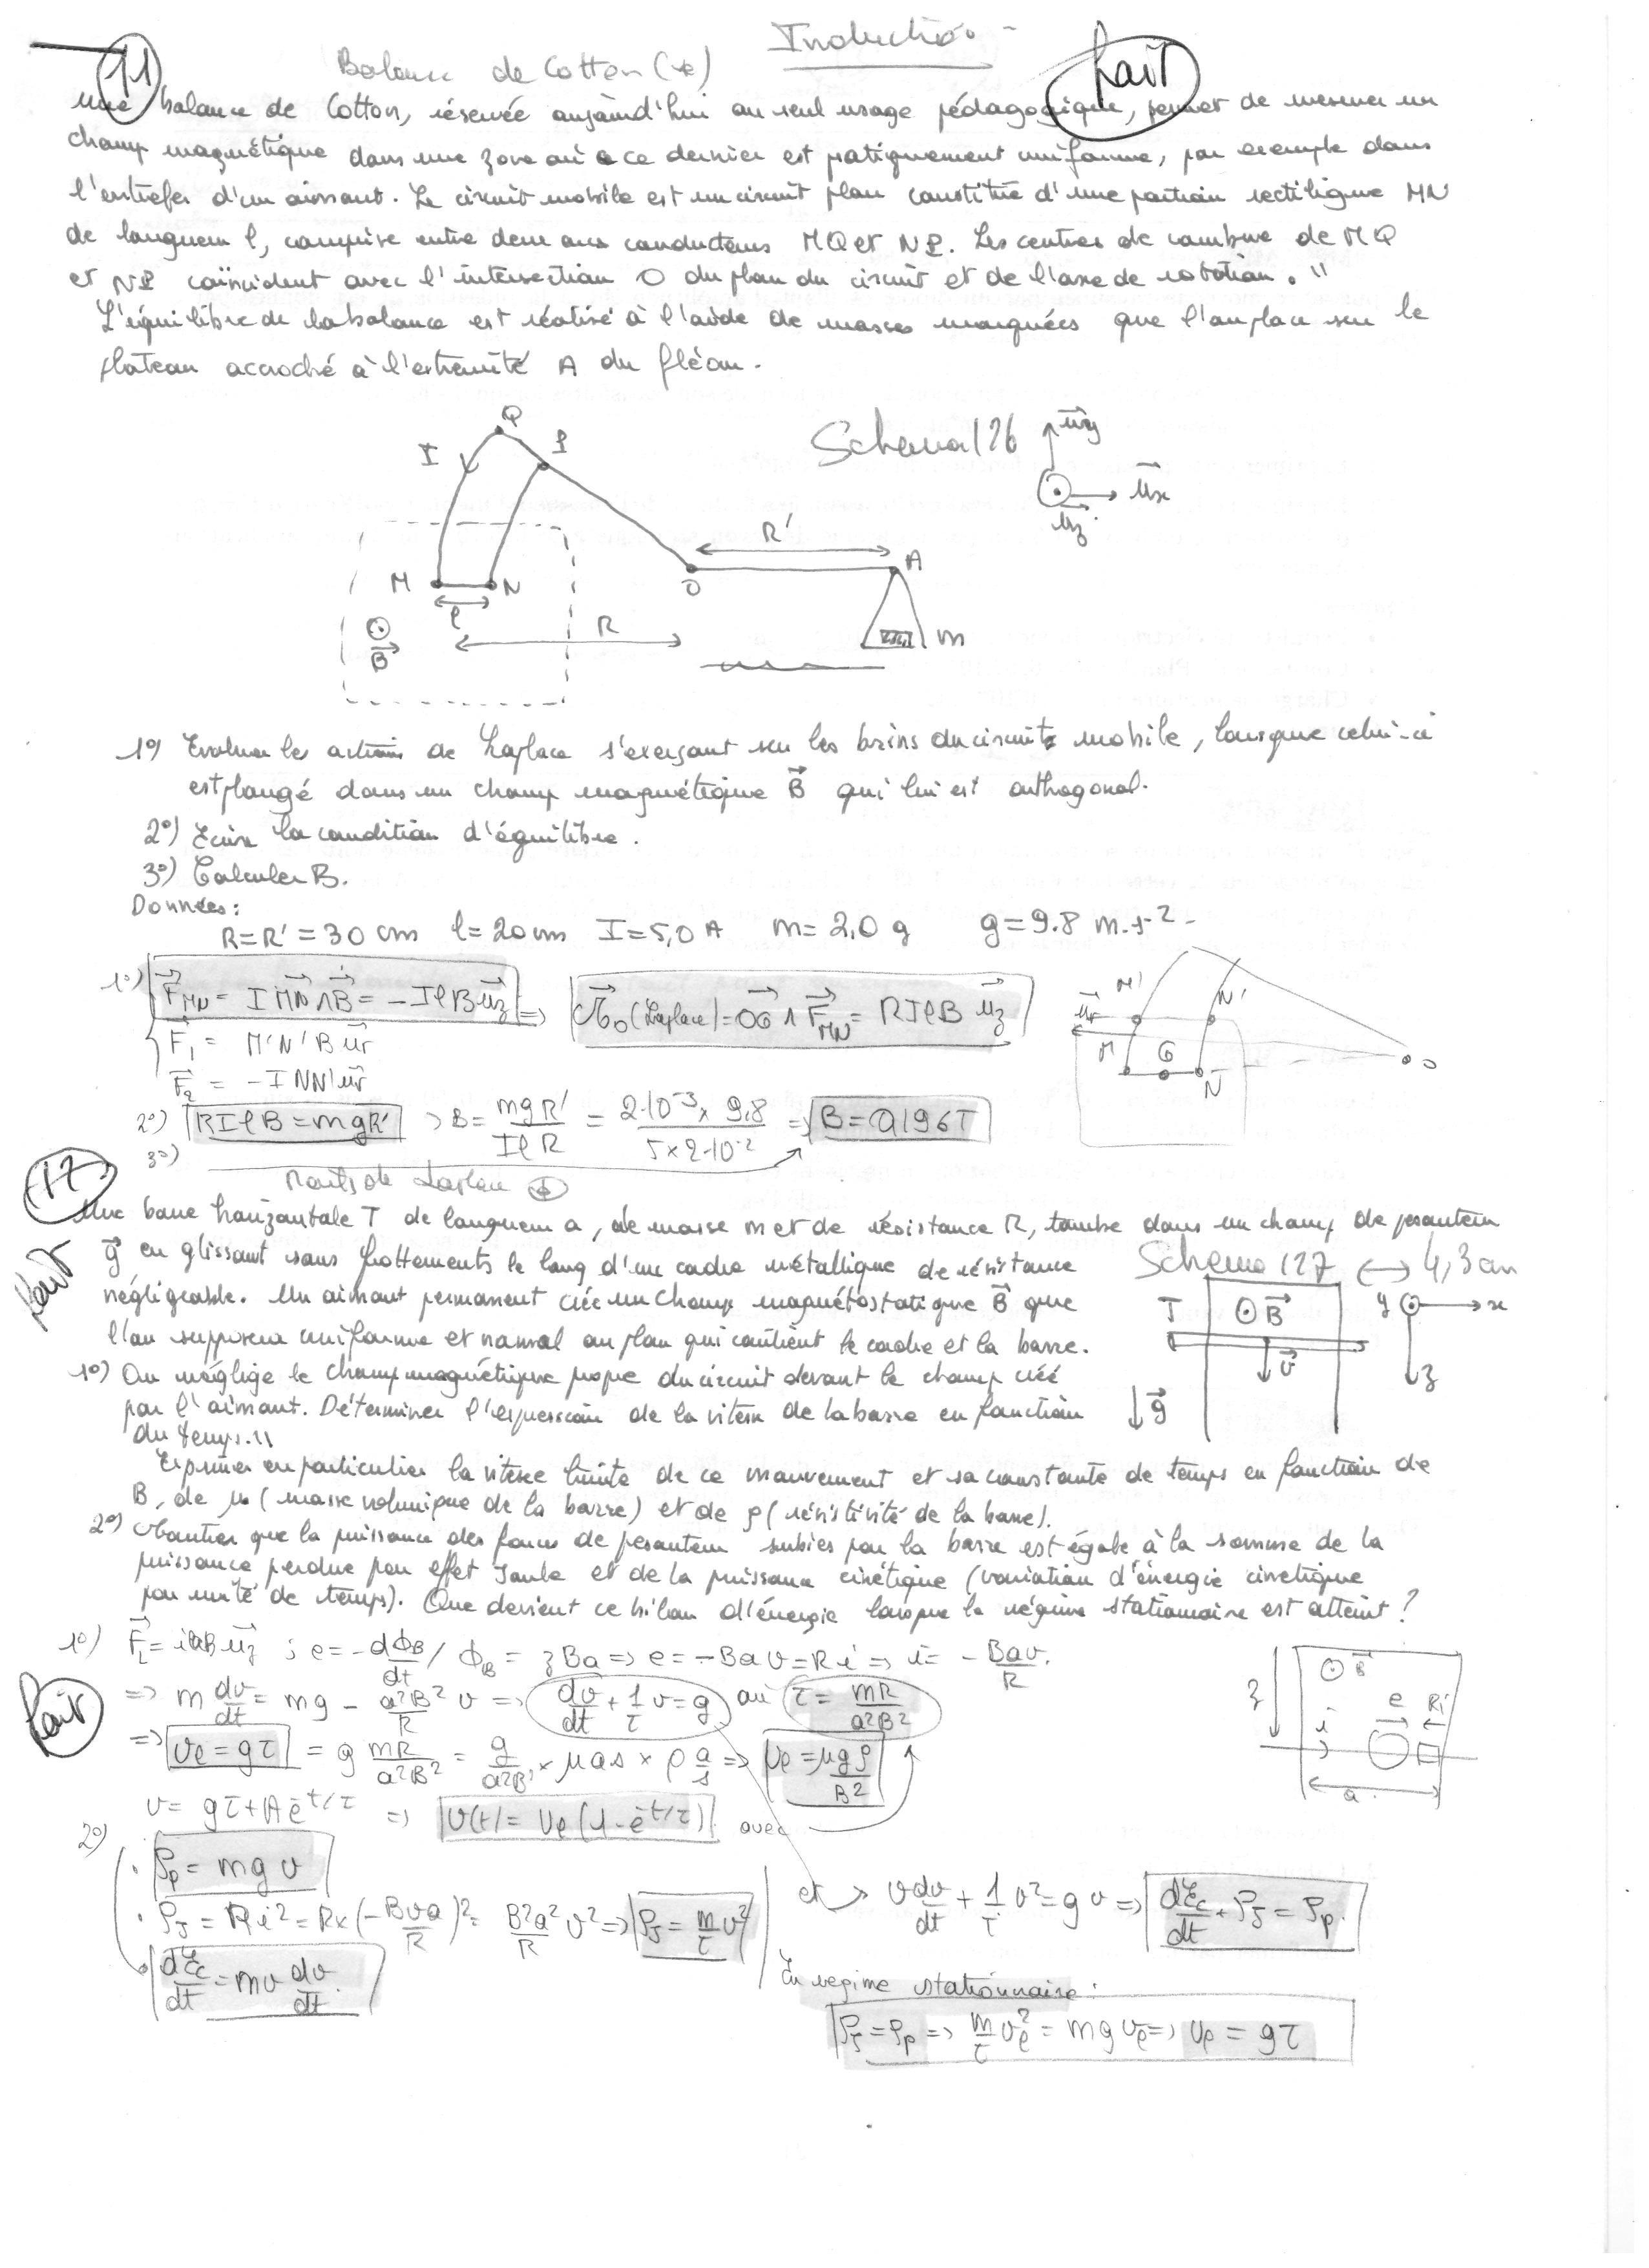 Induction
11
Balance de Cotton (*)
fait
Une balance de Cotton, réservée aujourd'hui au seul usage pédagogique, permet de mesurer un
champ magnétique dans une zone où ce dernier est pratiquement uniforme, par exemple dans
l'entrefer d'un aimant. Le circuit mobile est un circuit plan constitué d'une portion rectiligne MN
de longueur l, comprise entre deux arcs conducteurs MQ et NP. Les centres de courbure de MQ
et NP coïncident avec l'intersection O du plan du circuit et de l'axe de rotation. "
L'équilibre de la balance est réalisé à l'aide de masses marquées que l'on place sur le
plateau accroché à l'extrémité A du fléau.
Q
I
P
Schema 126
uy
ux
uz
R'
M N O A
l
R
m
B
1°) Evaluer les actions de Laplace s'exerçant sur les brins du circuit mobile, lorsque celui-ci
est plongé dans un champ magnétique B⃗ qui lui est orthogonal.
2°) Ecrire la condition d'équilibre.
3°) Calculer B.
Données:
R=R'=30 cm l=20cm I=5,0 A m=2,0 g g=9.8 m.s-2
1°) F⃗MN = I M⃗N ∧ B⃗ = -IlB u⃗z => M⃗o (Laplace) = O⃗G ∧ F⃗MN = RIlB u⃗z
F⃗1 = M'N'B u⃗r
F⃗2 = -I NN' u⃗r
M' N' ur M G N O
2°) RIlB = mgR' => B = mgR'/IlR = 2·10-3 x 9,8 / 5x2·10-2 => B = 0,196T
3°)
17
Rails de Laplace
Une barre horizontale T de longueur a, de masse m et de résistance R, tombe dans un champ de pesanteur
g⃗ en glissant sans frottements le long d'un cadre métallique de résistance
négligeable. Un aimant permanent crée un champ magnétostatique B⃗ que
l'on supposera uniforme et normal au plan qui contient le cadre et la barre.
Schema 127 <-> 4,3 cm
T B⃗ v⃗ g⃗ y x z
fait
1°) On néglige le champ magnétique propre du circuit devant le champ créé
par l'aimant. Déterminer l'expression de la vitesse de la barre en fonction
du temps. "
Exprimer en particulier la vitesse limite de ce mouvement et sa constante de temps en fonction de
B, de μ (masse volumique de la barre) et de ρ (résistivité de la barre).
2°) Montrer que la puissance des forces de pesanteur subies par la barre est égale à la somme de la
puissance perdue par effet Joule et de la puissance cinétique (variation d'énergie cinétique
par unité de temps). Que devient ce bilan d'énergie lorsque le régime stationnaire est atteint ?
1°) F⃗L = iaB u⃗z ; e = -dΦB/dt / ΦB = zBa => e = -Bav = Ri => i = - Bav/R.
=> m dv/dt = mg - a²B²/R v => dv/dt + 1/τ v = g où τ = mR/a²B²
fait
=> vl = gτ = g mR/a²B² = g/a²B² x μas x ρ a/s => vl = μgρ/B²
v = gτ + Ae-t/τ => v(t) = vl (1 - e-t/τ) avec
B⃗ z i e Ri a
2°)
. Pp = mg v
. PJ = Ri² = Rx(-Bva/R)² = B²a²/R v² => PJ = m/τ v²
dEc/dt = mv dv/dt.
et -> v dv/dt + 1/τ v² = g v => dEc/dt + PJ = Pp.
En regime stationnaire :
PJ = Pp => m/τ vl² = mg vl => vl = gτ